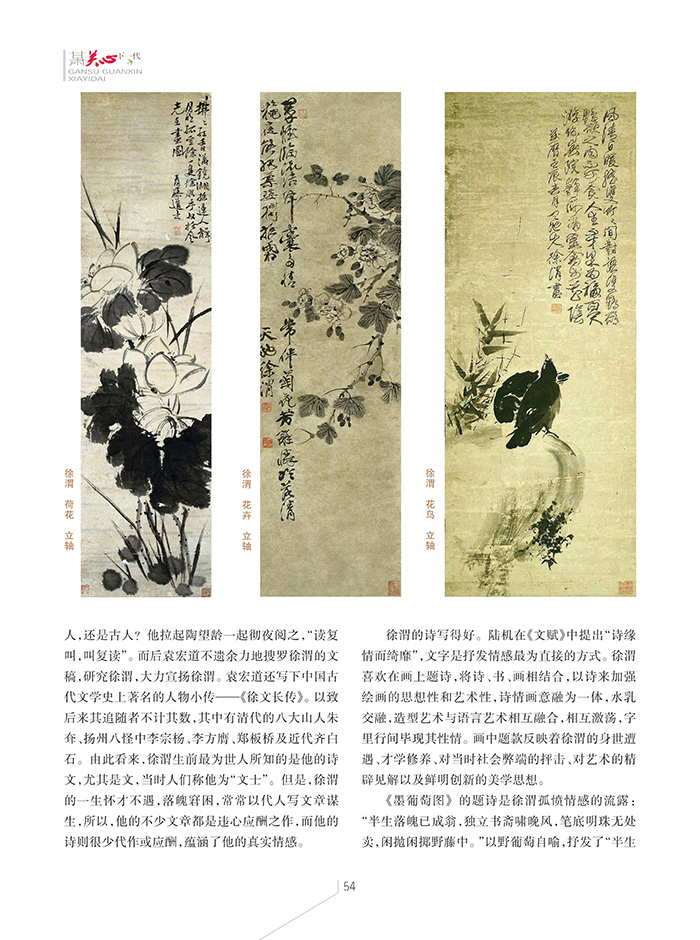 甘肃关心下一代
GANSU GUANXIN
XIAYIDAI
徐渭 荷花 立轴
徐渭 花卉 立轴
徐渭 花鸟 立轴
天池徐渭
人，还是古人？他拉起陶望龄一起彻夜阅之，“读复
叫，叫复读”。而后袁宏道不遗余力地搜罗徐渭的文
稿，研究徐渭，大力宣扬徐渭。袁宏道还写下中国古
代文学史上著名的人物小传——《徐文长传》。以致
后来其追随者不计其数，其中有清代的八大山人朱
耷、扬州八怪中李宗杨、李方膺、郑板桥及近代齐白
石。由此看来，徐渭生前最为世人所知的是他的诗
文，尤其是文，当时人们称他为“文士”。但是，徐渭
的一生怀才不遇，落魄窘困，常常以代人写文章谋
生，所以，他的不少文章都是违心应酬之作，而他的
诗则很少代作或应酬，蕴涵了他的真实情感。
徐渭的诗写得好。陆机在《文赋》中提出“诗缘
情而绮靡”，文字是抒发情感最为直接的方式。徐渭
喜欢在画上题诗，将诗、书、画相结合，以诗来加强
绘画的思想性和艺术性，诗情画意融为一体，水乳
交融，造型艺术与语言艺术相互融合，相互激荡，字
里行间毕现其性情。画中题款反映着徐渭的身世遭
遇、才学修养、对当时社会弊端的抨击、对艺术的精
辟见解以及鲜明创新的美学思想。
《墨葡萄图》的题诗是徐渭孤愤情感的流露：
“半生落魄已成翁，独立书斋啸晚风，笔底明珠无处
卖，闲抛闲掷野藤中。”以野葡萄自喻，抒发了“半生
54